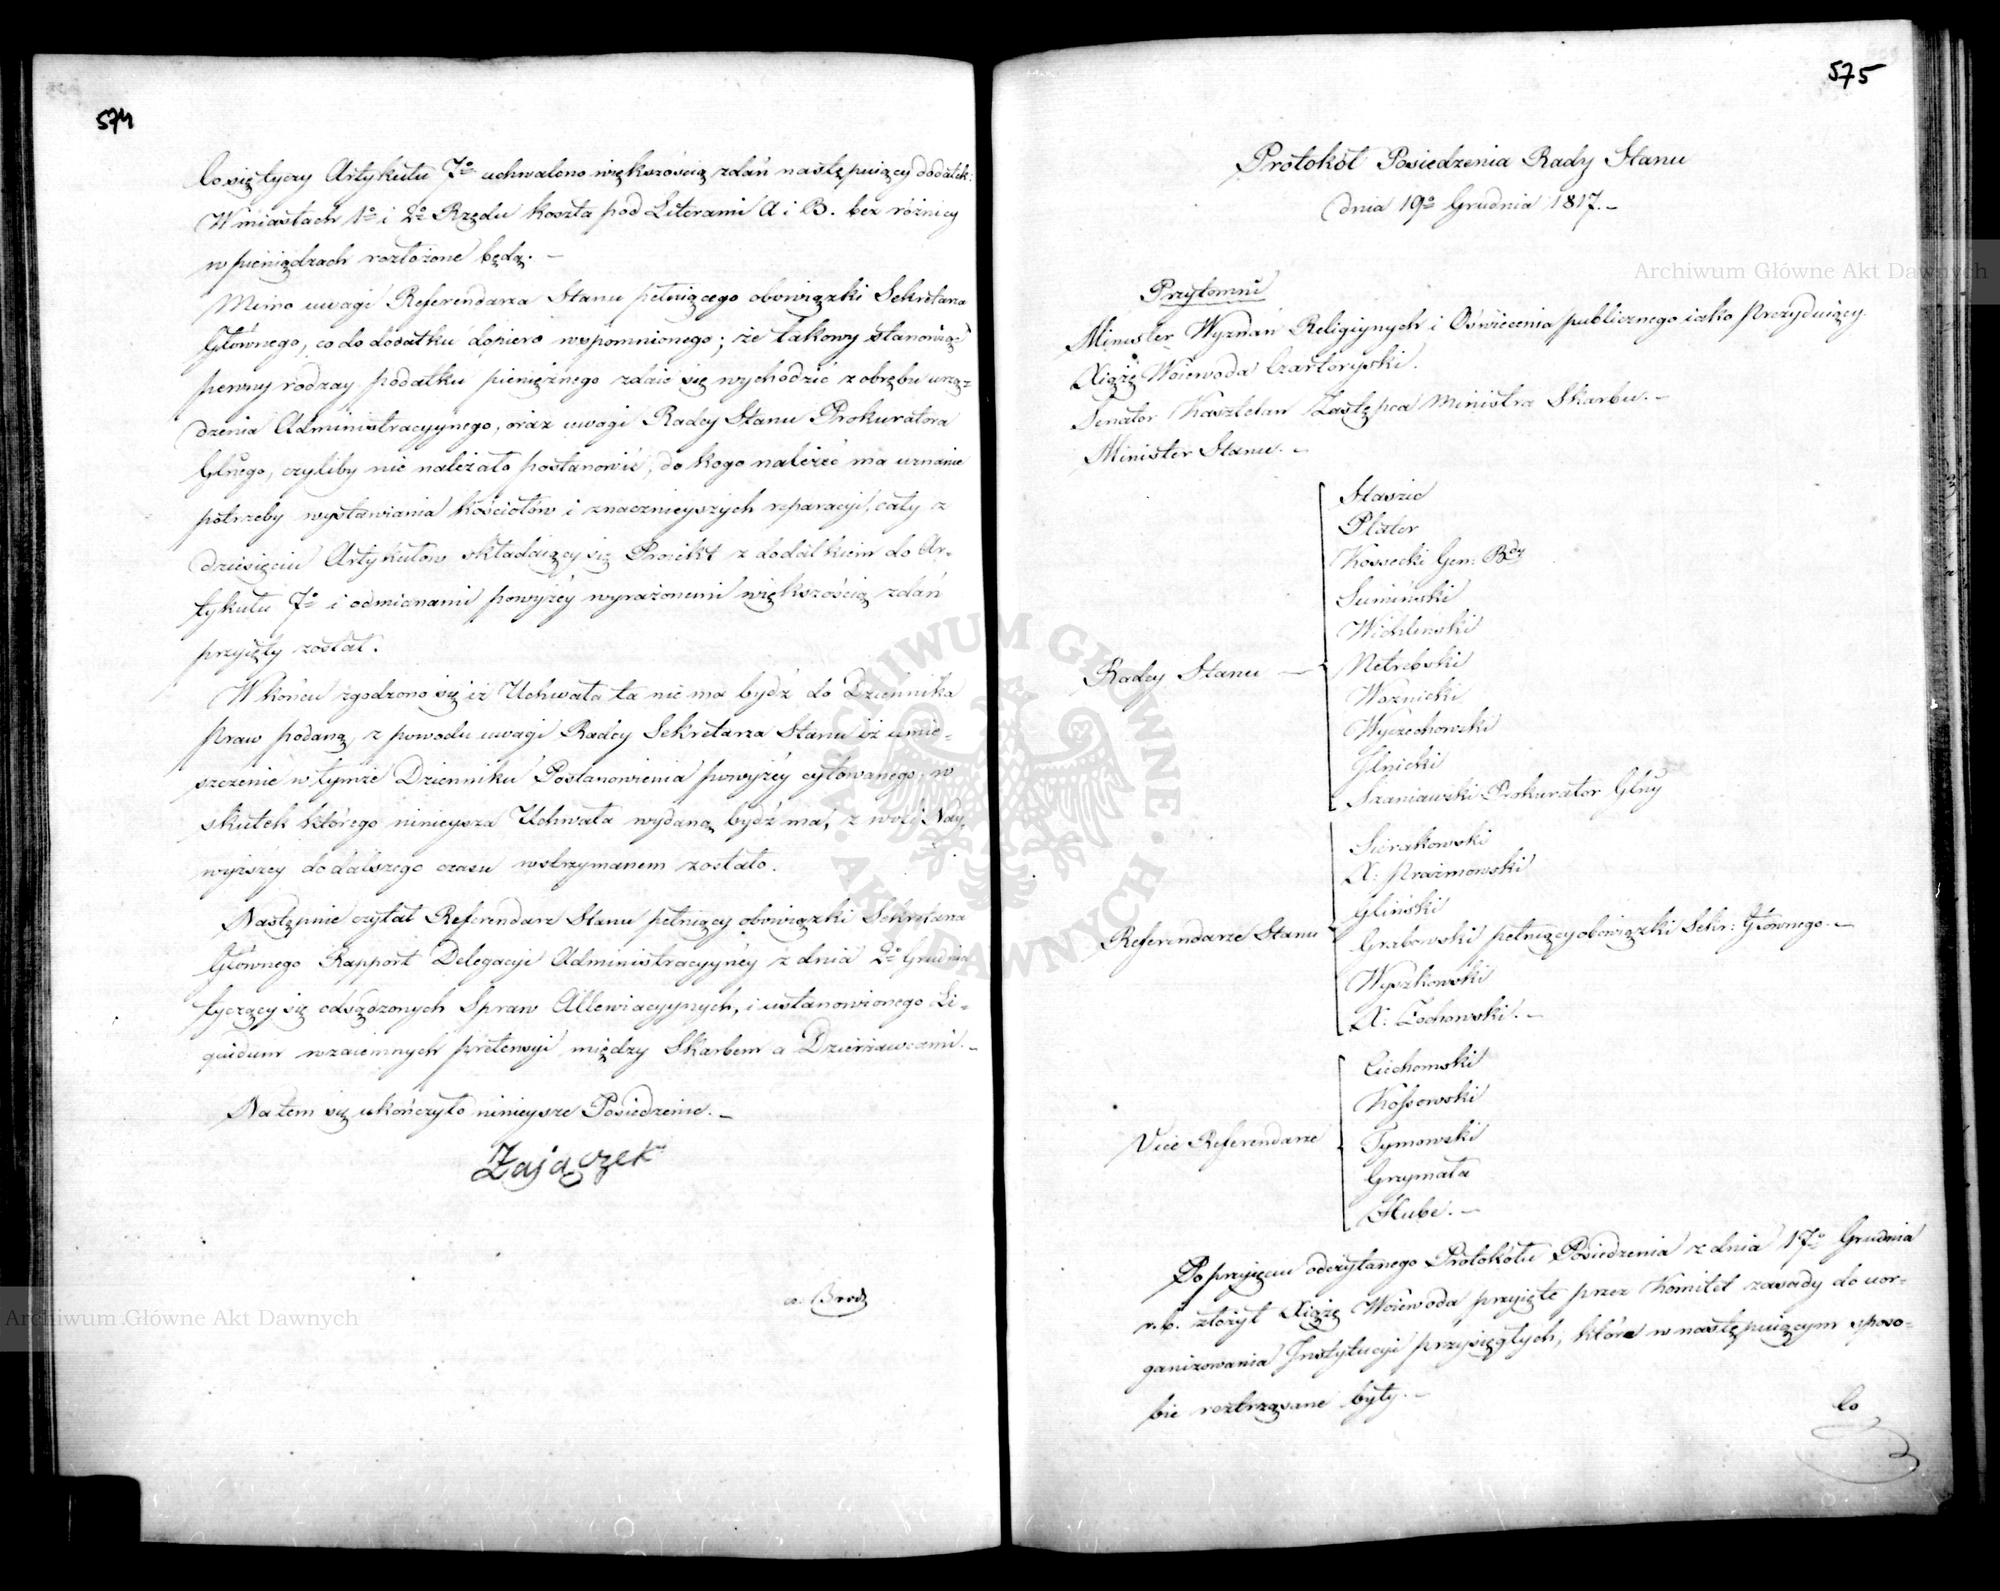 574
Co się tyczy Artykułu 7º uchwalono większością zdań następuiący dodatek:
W miastach 1º i 2º Rzędu koszta pod Literami A i B. bez różnicy
w pieniądzach rozłożone będą. —
Mimo uwagi Referendarza Stanu pełniącego obowiązki Sekretarza
Głównego, co do dodatku dopiero wspomnionego; że takowy stanowiąc
pewny rodzay podatku pieniężnego zdaie się wychodzić z obrębu urzą-
dzenia Administracyynego, oraz uwagi Radcy Stanu Prokuratora
Głnego, czyliby nie należało postanowić, do kogo należeć ma uznanie
potrzeby wystawiania kościołów i znacznieyszych reparacyi, cały z
dziesięciu Artykułów składaiący się Proiekt z dodatkiem do Ar-
tykułu 7º i odmianami powyżéy wyrażonemi większością zdań
przyięty został.
W końcu zgodzono się iż Uchwała ta nie ma bydź do Dziennika
Praw podaną, z powodu uwagi Radcy Sekretarza Stanu iż umie-
szczenie w tymże Dzienniku Postanowienia powyżéy cytowanego, w
skutek którego ninieysza Uchwała wydaną bydź ma, z woli Nay-
wyższéy do dalszego czasu wstrzymanem zostało.
Następnie czytał Referendarz Stanu pełniący obowiązki Sekretarza
Głównego Rapport Delegacyi Administracyynéy z dnia 2º Grudnia
tyczący się odsądzonych Spraw Allewiacyynych, i ustanowionego Li-
quidum wzaiemnych pretensyi między Skarbem a Dzierżawcami. —
Na tem się ukończyło ninieysze Posiedzenie. —
Zajączek
a. Brodz
575
Protokół Posiedzenia Rady Stanu
dnia 19º Grudnia 1817. —
Przytomni
Minister Wyznań Religiynych i Oświecenia publicznego iako Prezyduiący.
Xiążę Woiewoda Czartoryski.
Senator Kasztelan Zastępca Ministra Skarbu. —
Minister Stanu. —
Radcy Stanu —
Staszic
Plater
Kossecki Gen: Bdy
Sumiński
Wichlinski
Netrebski
Woźnicki
Wyczechowski
Glnicki
Szaniawski Prokurator Głny
Referendarze Stanu
Sierakowski
X. Prażmowski
Gliński
Grabowski pełniący obowiązki Sekr: Głównego. —
Wyszkowski
X. Żochowski. —
Vice Referendarze
Ciechomski
Kossowski
Tymowski
Grzymała
Hube. —
Po przyięciu odczytanego Protokółu Posiedzenia z dnia 17º Grudnia
r. b. złożył Xiążę Woiewoda przyięte przez Komitet zasady do uor-
ganizowania Instytucyi przysięgłych, które w następuiącym sposo-
bie roztrząsane były. —
Co
Archiwum Główne Akt Dawnych
Archiwum Główne Akt Dawnych
ARCHIWUM GŁÓWNE AKT DAWNYCH